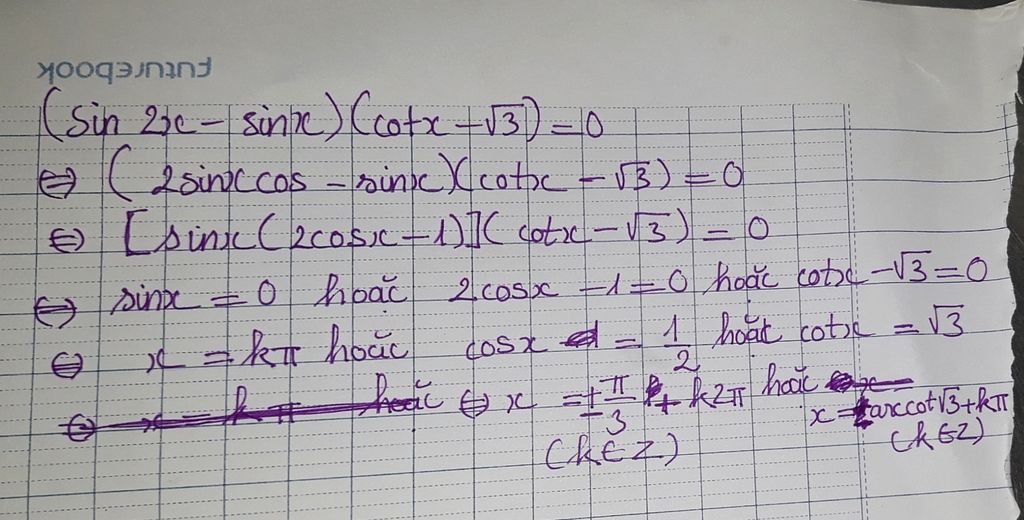 FUTUREBOOK
(sin 2x - sinx)(cotx - √3) = 0
⇔ ( 2sinxcos - sinx)(cotx - √3) = 0
⇔ [sinx(2cosx - 1)](cotx - √3) = 0
⇔ sinx = 0 hoăc 2cosx - 1 = 0 hoăc cotx - √3 = 0
⇔ x = kπ hoăc cosx = 1/2 hoăc cotx = √3
⇔ x = kπ hoăc ⇔ x = ± π/3 + k2π hoăc x = arccot√3 + kπ
(k ∈ Z) (k ∈ Z)